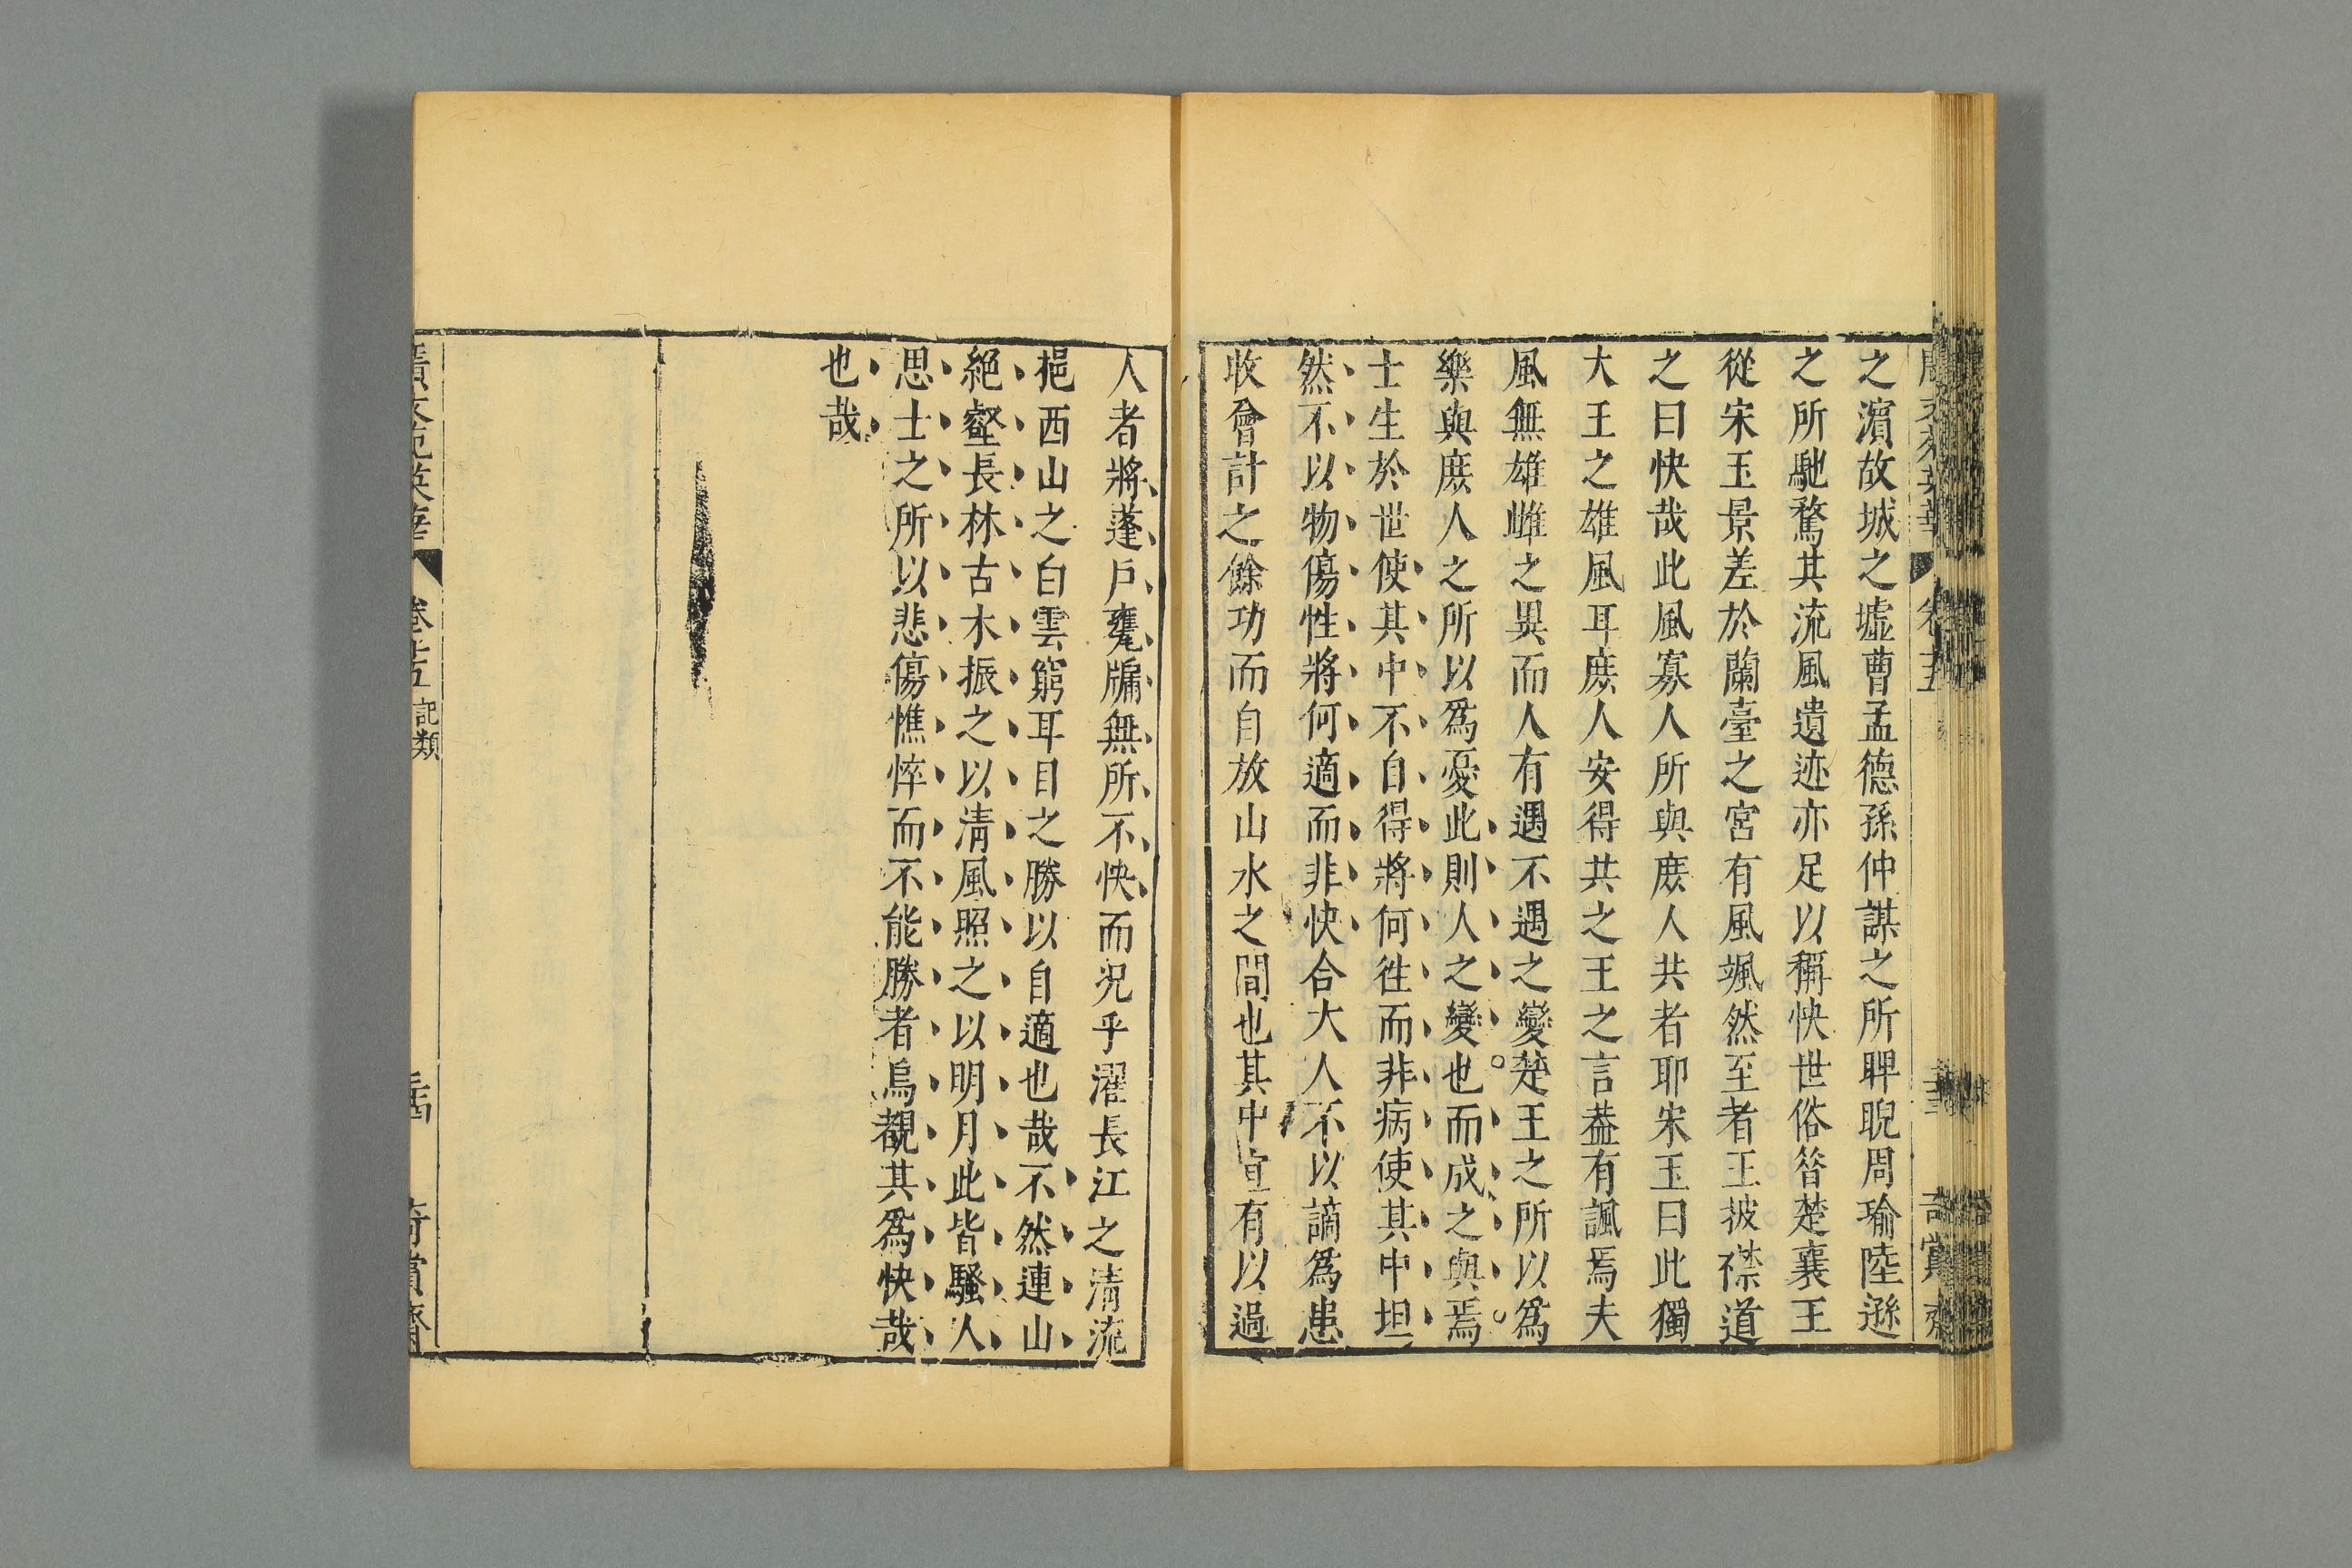 之濵故城之墟曹孟德孫仲謀之所睥睨周瑜陸遜
之所馳騖其流風遺迹亦足以稱快世俗昝楚襄王
從宋玉景差於蘭臺之宮有風颯然至者王披襟道
之曰快哉此風寡人所與庶人共者耶宋玉曰此獨
大王之雄風耳庶人安得共之王之言葢有諷焉夫
風無雄雌之異而人有遇不遇之變楚王之所以爲
樂與庶人之所以爲憂此則人之變也而成之與焉
士生於世使其中不自得將何徃而非病使其中坦
然不以物傷性將何適而非快合大人不以謫爲患
收會計之餘功而自放山水之間也其中宜有以過
人者將蓬戶甕牖無所不快而况乎濯長江之清流
挹西山之白雲窮耳目之勝以自適也哉不然連山
絕壑長林古木振之以清風照之以明月此皆騷人
思士之所以悲傷憔悴而不能勝者烏覩其爲快哉
也哉
廣文苑英華 卷廿五 記類 奇賞齋